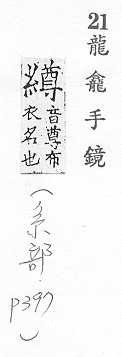 21龍龕手鏡
繜音尊布
衣名也
(糸部 p397)